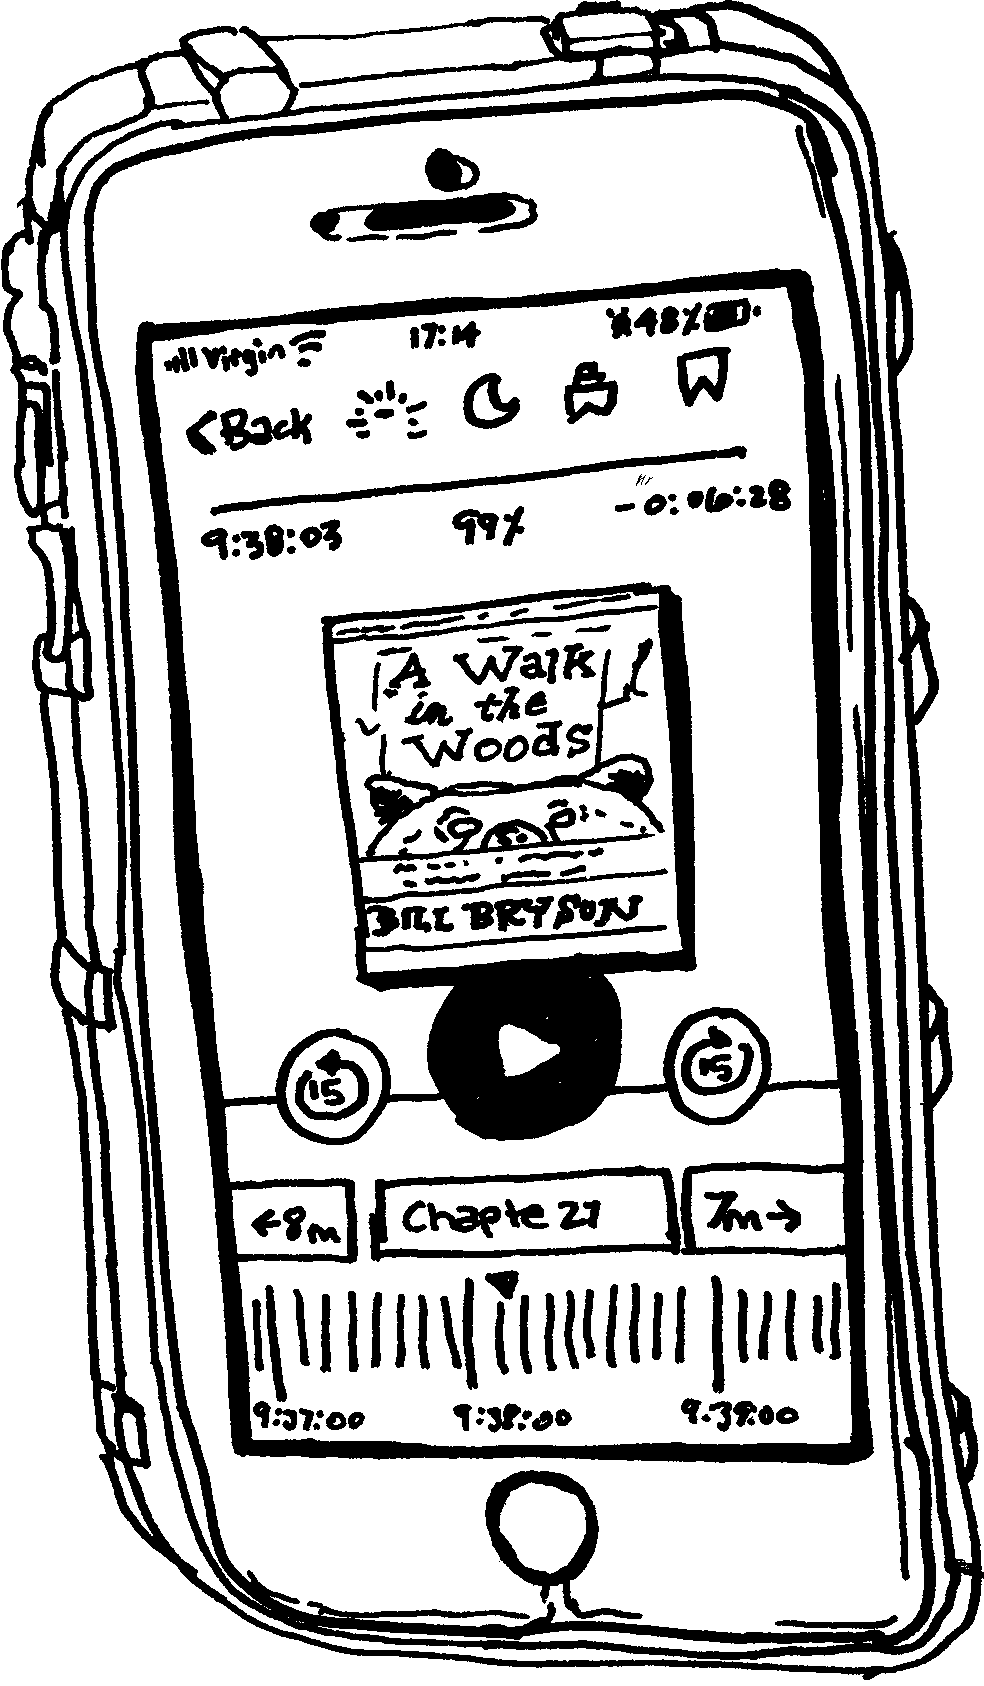 Virgin 17:14 48%
<Back
9:38:03 99% -0:06:28
A Walk
in the
Woods
BILL BRYSON
15 15
←8m Chapte 21 7m→
9:37:00 9:38:00 9:39:00